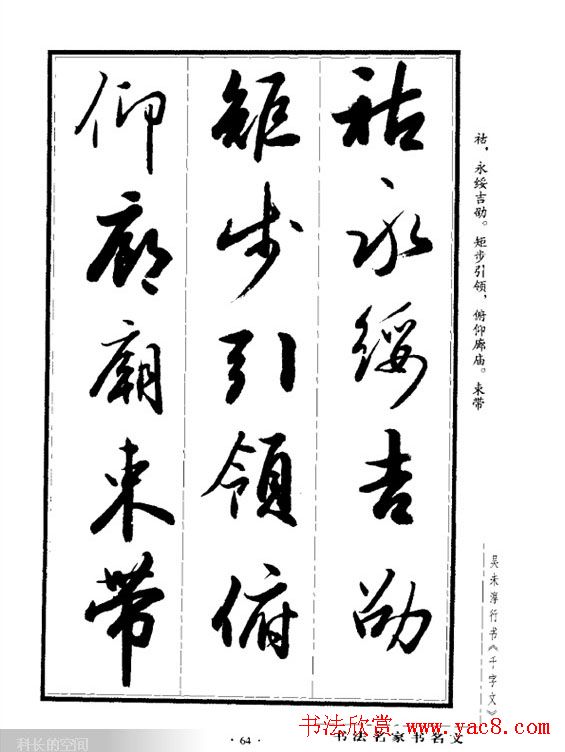 祜永绥吉劭
矩步引领俯
仰廊廟束带
祜，永绥吉劭。矩步引领，俯仰廊庙。束带
吴未淳行书《千字文》
书法名家书名文
· 64 ·
书法欣赏 www.yac8.com
科长的空间